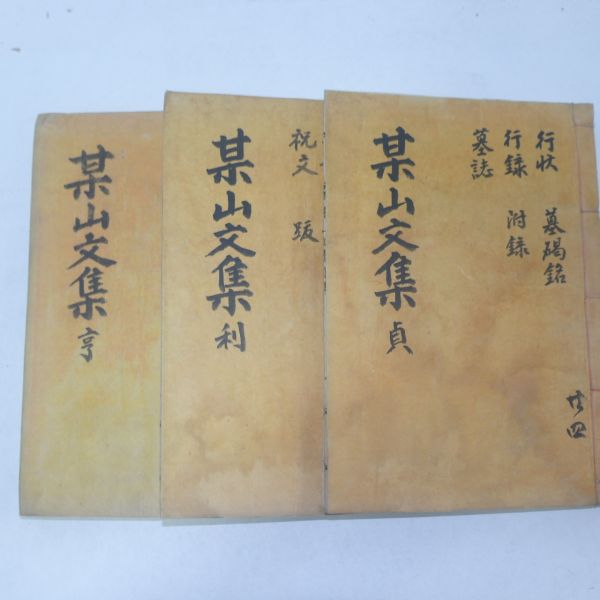 某山文集 亨
某山文集 利
祝文 跋
某山文集 貞
行狀 墓碣銘
行録 附録
墓誌
共四